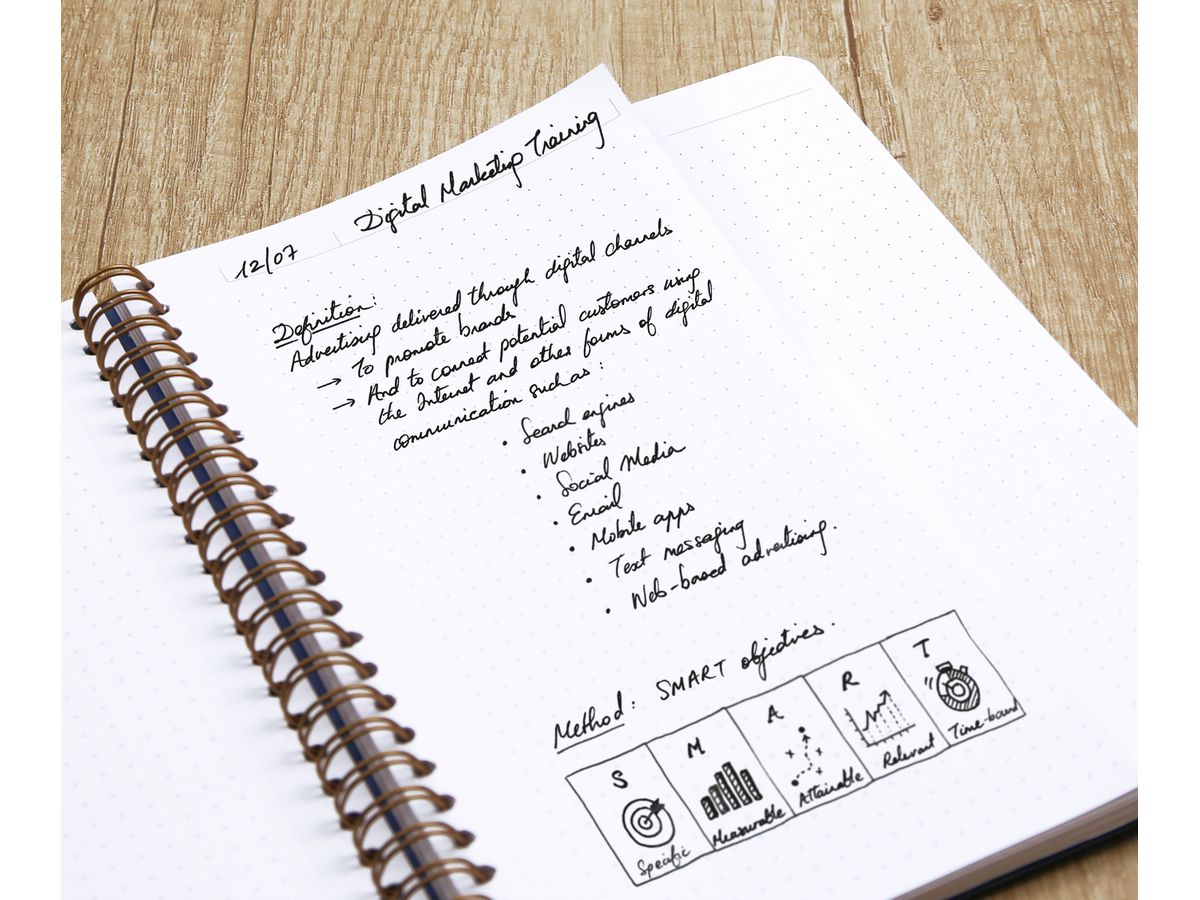 12/07 Digital Marketing Training
Definition:
Advertising delivered through digital channels
→ To promote brands
→ And to connect potential customers using
the Internet and other forms of digital
communication such as:
• Search engines
• Websites
• Social Media
• Email
• Mobile apps
• Text messaging
• Web-based advertising.
Method: SMART objectives.
S M A R T
Specific Measurable Attainable Relevant Time-bound